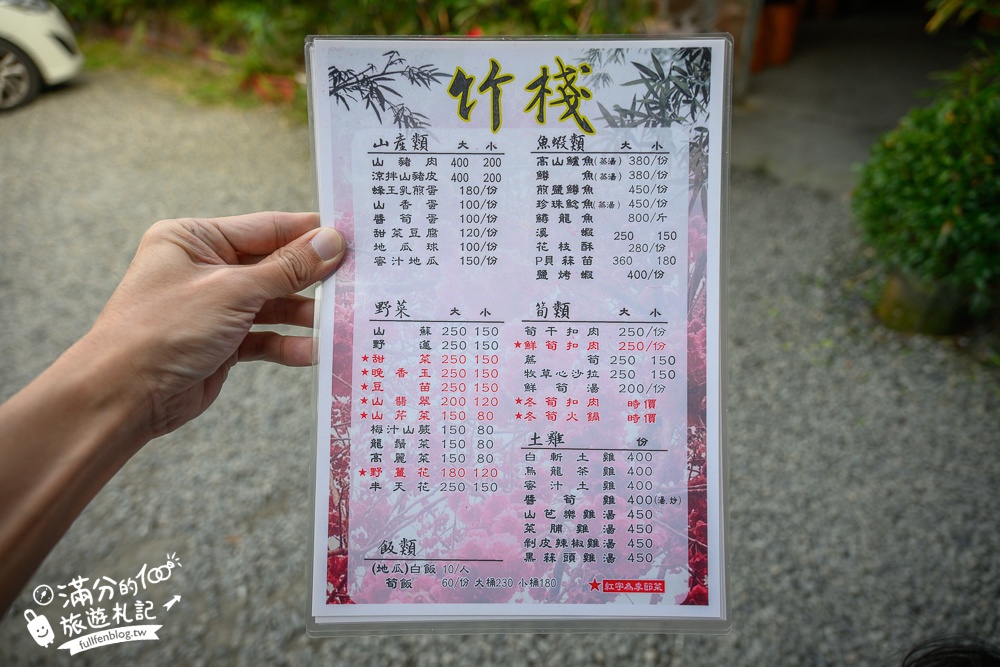 竹棧
山產類 大 小
山豬肉 400 200
涼拌山豬皮 400 200
蜂王乳煎蛋 180/份
山香蛋 100/份
醬筍蛋 100/份
甜菜豆腐 120/份
地瓜球 100/份
蜜汁地瓜 150/份
魚蝦類 大 小
高山鱸魚(蒸湯) 380/份
鱒魚(蒸湯) 380/份
煎鹽鱒魚 450/份
珍珠鯰魚(蒸湯) 450/份
鱘龍魚 800/斤
溪蝦 250 150
花枝酥 280/份
P貝蒜苗 360 180
鹽烤蝦 400/份
野菜 大 小
山蘇 250 150
野蓮 250 150
★甜菜 250 150
★晚香玉 250 150
★豆苗 250 150
★山翡翠 200 120
★山芹菜 150 80
梅汁山蕨 150 80
龍鬚菜 150 80
高麗菜 150 80
★野薑花 180 120
半天花 250 150
筍類 大 小
筍干扣肉 250/份
★鮮筍扣肉 250/份
蔴筍 250 150
牧草心沙拉 250 150
鮮筍湯 200/份
★冬筍扣肉 時價
★冬筍火鍋 時價
土雞 份
白斬土雞 400
烏龍茶雞 400
蜜汁土雞 400
醬筍雞 400(湯.炒)
山芭樂雞湯 450
菜脯雞湯 450
剝皮辣椒雞湯 450
黑蒜頭雞湯 450
飯類
(地瓜)白飯 10/人
筍飯 60/份 大桶230 小桶180
★紅字為季節菜
滿分的100
旅遊札記
fullfenblog.tw